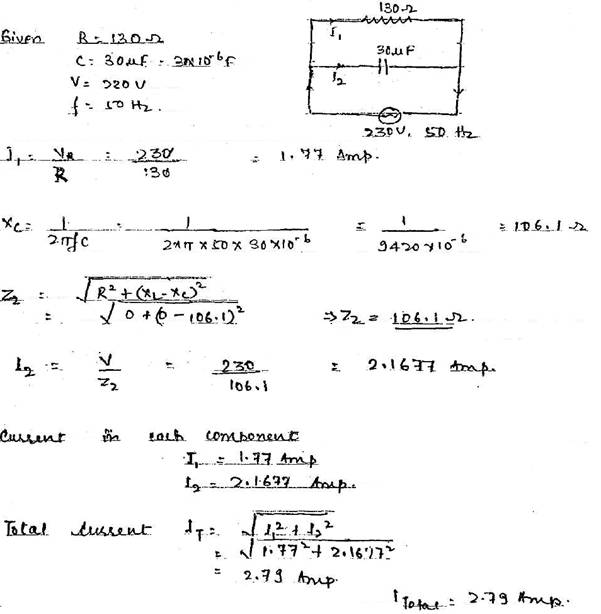 130Ω
I₁
30µF
I₂
230V, 50 Hz
Given R = 130Ω
C = 30µF = 30×10⁻⁶F
V = 220V
f = 50 Hz.
I₁ = V_R / R = 230 / 130 = 1.77 Amp.
X_C = 1 / 2πfC = 1 / 2×π×50×30×10⁻⁶ = 1 / 9420×10⁻⁶ = 106.1Ω
Z₂ = √R² + (X_L - X_C)²
= √0 + (0 - 106.1)² ⇒ Z₂ = 106.1Ω.
I₂ = V / Z₂ = 230 / 106.1 = 2.1677 Amp.
Current in each component
I₁ = 1.77 Amp
I₂ = 2.1677 Amp.
Total current I_T = √I₁² + I₂²
= √1.77² + 2.1677²
= 2.79 Amp.
I Total = 2.79 Amp.